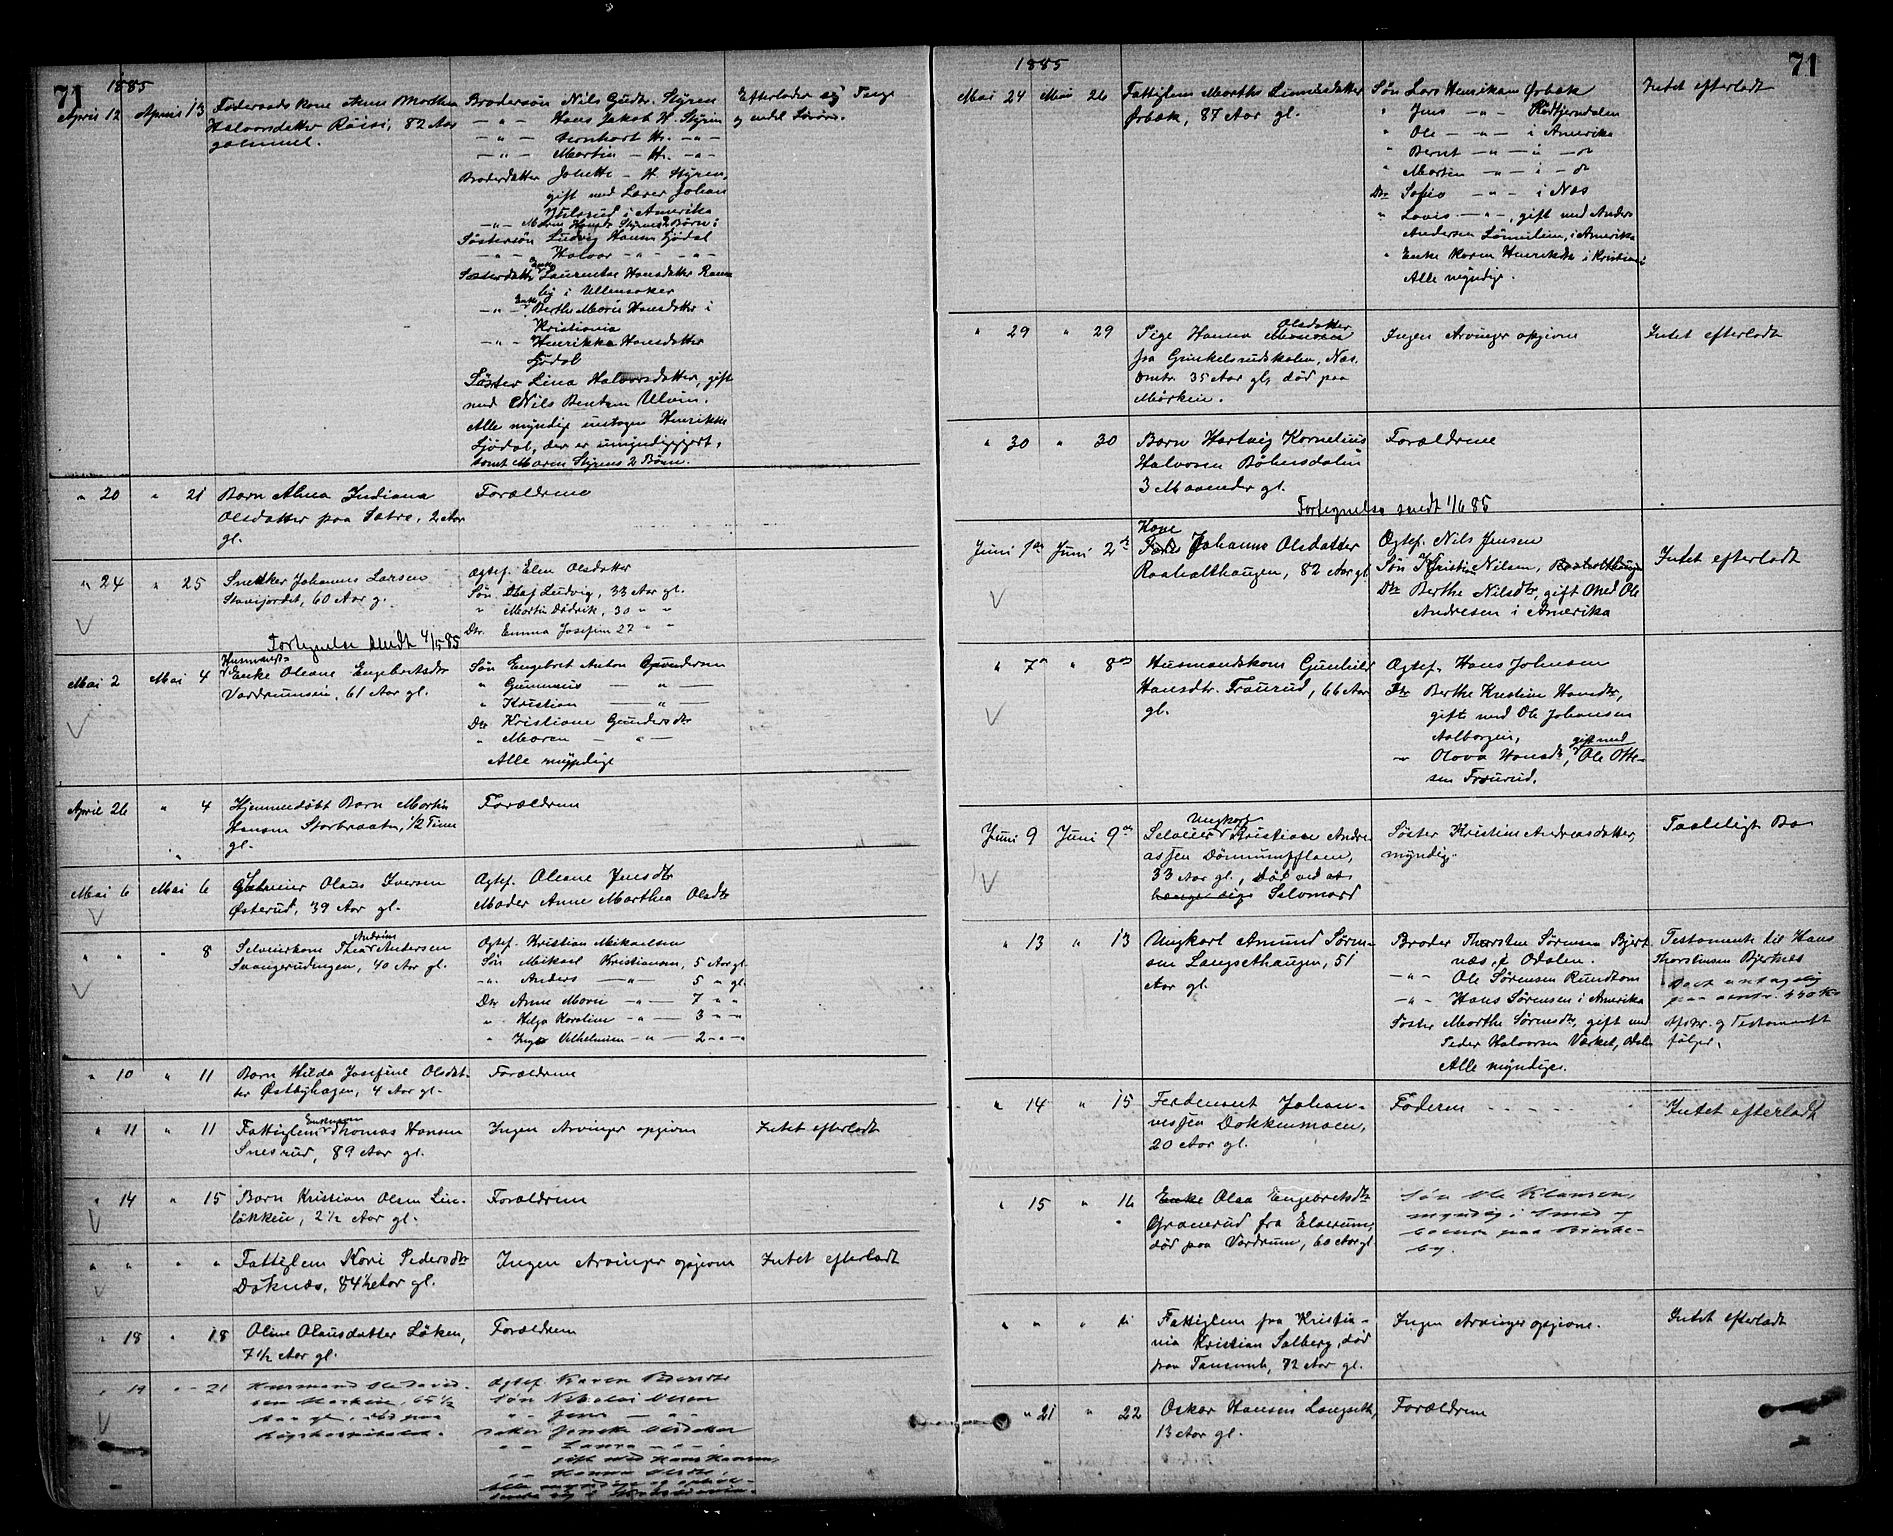 71
1885
April 12 April 13 Føderaadskone Anne Marthea
Halvorsdatter Røisi, 82 Aar
gammel.
Brodersøn Nils Gudbr. Styren
— " — Hans Jakob H. Styren
— " — Bernhart H. — " —
— " — Martin — H. — " —
Broderdatter Johette — H. Styren,
gift med Lærer Johan
i Amerika
— " — Maren Hansdr Styrens 2 Børn:
Søstersøn Ludvig Hansen Fjødal
— " — Halvor — " — — " —
Søsterdatter Enke Laurentse Hansdatter
i Ullensaker
— " — Enke Berthe Marie Hansdatter i
Kristiania
— " — Henrikke Hansdatter
Fjødal
Søster Lina Halvorsdatter, gift
med Nils Bentsen Ulvin.
Alle myndige undtagen Henrikke
Fjødal, der er umyndiggjort,
samt Maren Styrens 2 Børn.
Efterlader sig Penge
og endel Løsøre.
" 20 " 21 Barn Alma Indiana
Olsdatter paa Sætre, 2 Aar
gl.
Forældrene
" 24 " 25 Snekker Johannes Larsen
Stavifjordet, 60 Aar g.
Ægtef. Elen Olsdatter
Søn Olaf Ludvig, 33 Aar gl.
" Martin Didrik, 30 " "
Dtr. Emma Josefine 27 " "
Fortegnelse sendt 4/5 85
Mai 2 Mai 4 Husmands-
Enke Oleane Engebretsdtr
Vardrumseie, 61 Aar gl.
Søn Engebret Anton Gundersen
" Gunnerius — " —
" Kristian — " —
Dtr Kristiane Gundersdtr
" Maren — " —
Alle myndige
April 26 " 4 Hjemmedøbt Barn Martin
Hansen Storbraaten, 1/2 Time
gl.
Forældrene
Mai 6 Mai 6 Selveier Olaus Iversen
Østerud, 39 Aar gl.
Ægtef. Oleane Jensdtr
Moder Anne Marthea Olsdtr
" " " 8 Selveierkone Thea Andrine Andersen
Svangerudengen, 40 Aar gl.
Ægtef. Kristian Mikaelsen
Søn Mikael Kristiansen, 5 Aar gl.
— " — Anders — " — 5 " gl.
Dtr Anne Marie — " — 7 " "
" Helga Karoline — " — 3 " "
" Inga Vilhelmine — " — 2 " "
" 10 " 11 Barn Hilda Josefine Olsdat-
ter Østbyhagen, 4 Aar gl.
Forældrene
" 11 " 11 Fattiglem Enkemand Thomas Hansen
Snesrud, 89 Aar gl.
Ingen Arvinger opgivne
Intet efterladt
" 14 " 15 Barn Kristian Olsen Lin-
løkken, 2 1/2 Aar gl.
Forældrene
" " " " Fattiglem Kari Pedersdtr
Døknæs, 84 1/2 Aar gl.
Ingen Arvinger opgivne
Intet efterladt
" 18 " 18 Oline Olausdatter Løken,
7 1/2 Aar gl.
Forældrene
" 19 " 21 Husmand Ole David-
sen 65 1/2
Aar gl., død paa
Rigshospitalet.
Ægtef. Karen Berntsdtr
Søn Nikolai Olsen
" Jens — " —
Datter Jenette Olsdatter
" Laura — " —
gift med Hans Hansen,
" Hanna Olsdtr,
Alle myndige og ophol-
dende sig i
71
1885
Mai 24 Mai 26 Fattiglem Marthe Linnesdatter
Ørbæk, 87 Aar gl.
Søn Lars Henriksen Ørbæk
" Jens — " — Rødtjerndalen
" Ole — " — i Amerika
" Bernt — " — i — do
" Martin — " — i — do
Dtr Sofie — " — i Næs
" Lovis — " —, gift med Anders
Andersen Lømeilien, i Amerika
" Enke Karen Henriksdtr i Kristiania
Alle myndige.
Intet efterladt
" 29 " 29 Pige Hanna Olsdatter
fra Grinkelsrudskolen, Næs.
Omtr. 35 Aar gl, død paa
Mørken.
Ingen Arvinger opgivne
Intet efterladt
" 30 " 30 Barn Hartvig Kornelius
Halvorsen Bøhersdalen
3 Maaneder gl.
Forældrene
Fortegnelse sendt 1/6 85
Juni 1ste Juni 2de Kone
Johanne Olsdatter
Raaholthaugen, 82 Aar gl
Ægtef. Nils Jensen
Søn Kristian Nilsen, Raaholthaugen
Dtr Berthe Nilsdtr, gift med Ole
Andresen i Amerika
Intet efterladt
" 7de " 8de Husmandskone Gunhild
Hansdtr. Traurud, 66 Aar
gl.
Ægtef. Hans Johnsen
Dtr Berthe Kristine Hansdtr,
gift med Ole Johansen
Aalborgen,
" Olava Hansdtr, gift med Ole Otte-
sen Traurud.
Juni 9 Juni 9de Ungkarl
Selveier Kristian Andre-
assen Dønnumflaen,
33 Aar gl., død ved at
hænge sig Selvmord
Søster Kristine Andreasdatter,
myndig.
Taaleligt Bo
" 13 " 13 Ungkarl Amund Søren-
sen Langsethaugen, 51
Aar gl.
Broder Thorsten Sørensen Bjert-
næs, i Odalen.
— " — Ole Sørensen Rundtom
— " — Hans Sørensen i Amerika
Søster Marthe Sørensdtr, gift med
Peder Halvorsen Værket, Odalen
Alle myndige.
Testamente til Hans
Thorstensen Bjertnæs
Boet antagelig
paa omtr. 440 Kr
Afskr. og Testamentet
følger.
" 14 " 15 Ferdenant Johan-
nessen Dokkenmoen,
20 Aar gl.
Faderen - - - - -
Intet efterladt
" 15 " 16 Enke Olea Engebretsdtr
Granerud fra Elverum,
død paa Vardrum, 60 Aar gl
Søn Ole Klausen,
myndig, Smed og
boende paa Bjerke-
by.
" " " " Fattiglem fra Kristia-
nia Kristian Solberg, død
paa Tansumb, 72 Aar gl.
Ingen Arvinger opgivne.
Intet efterladt
" 21 " 22 Oskar Hansen Langseth,
13 Aar gl.
Forældrene